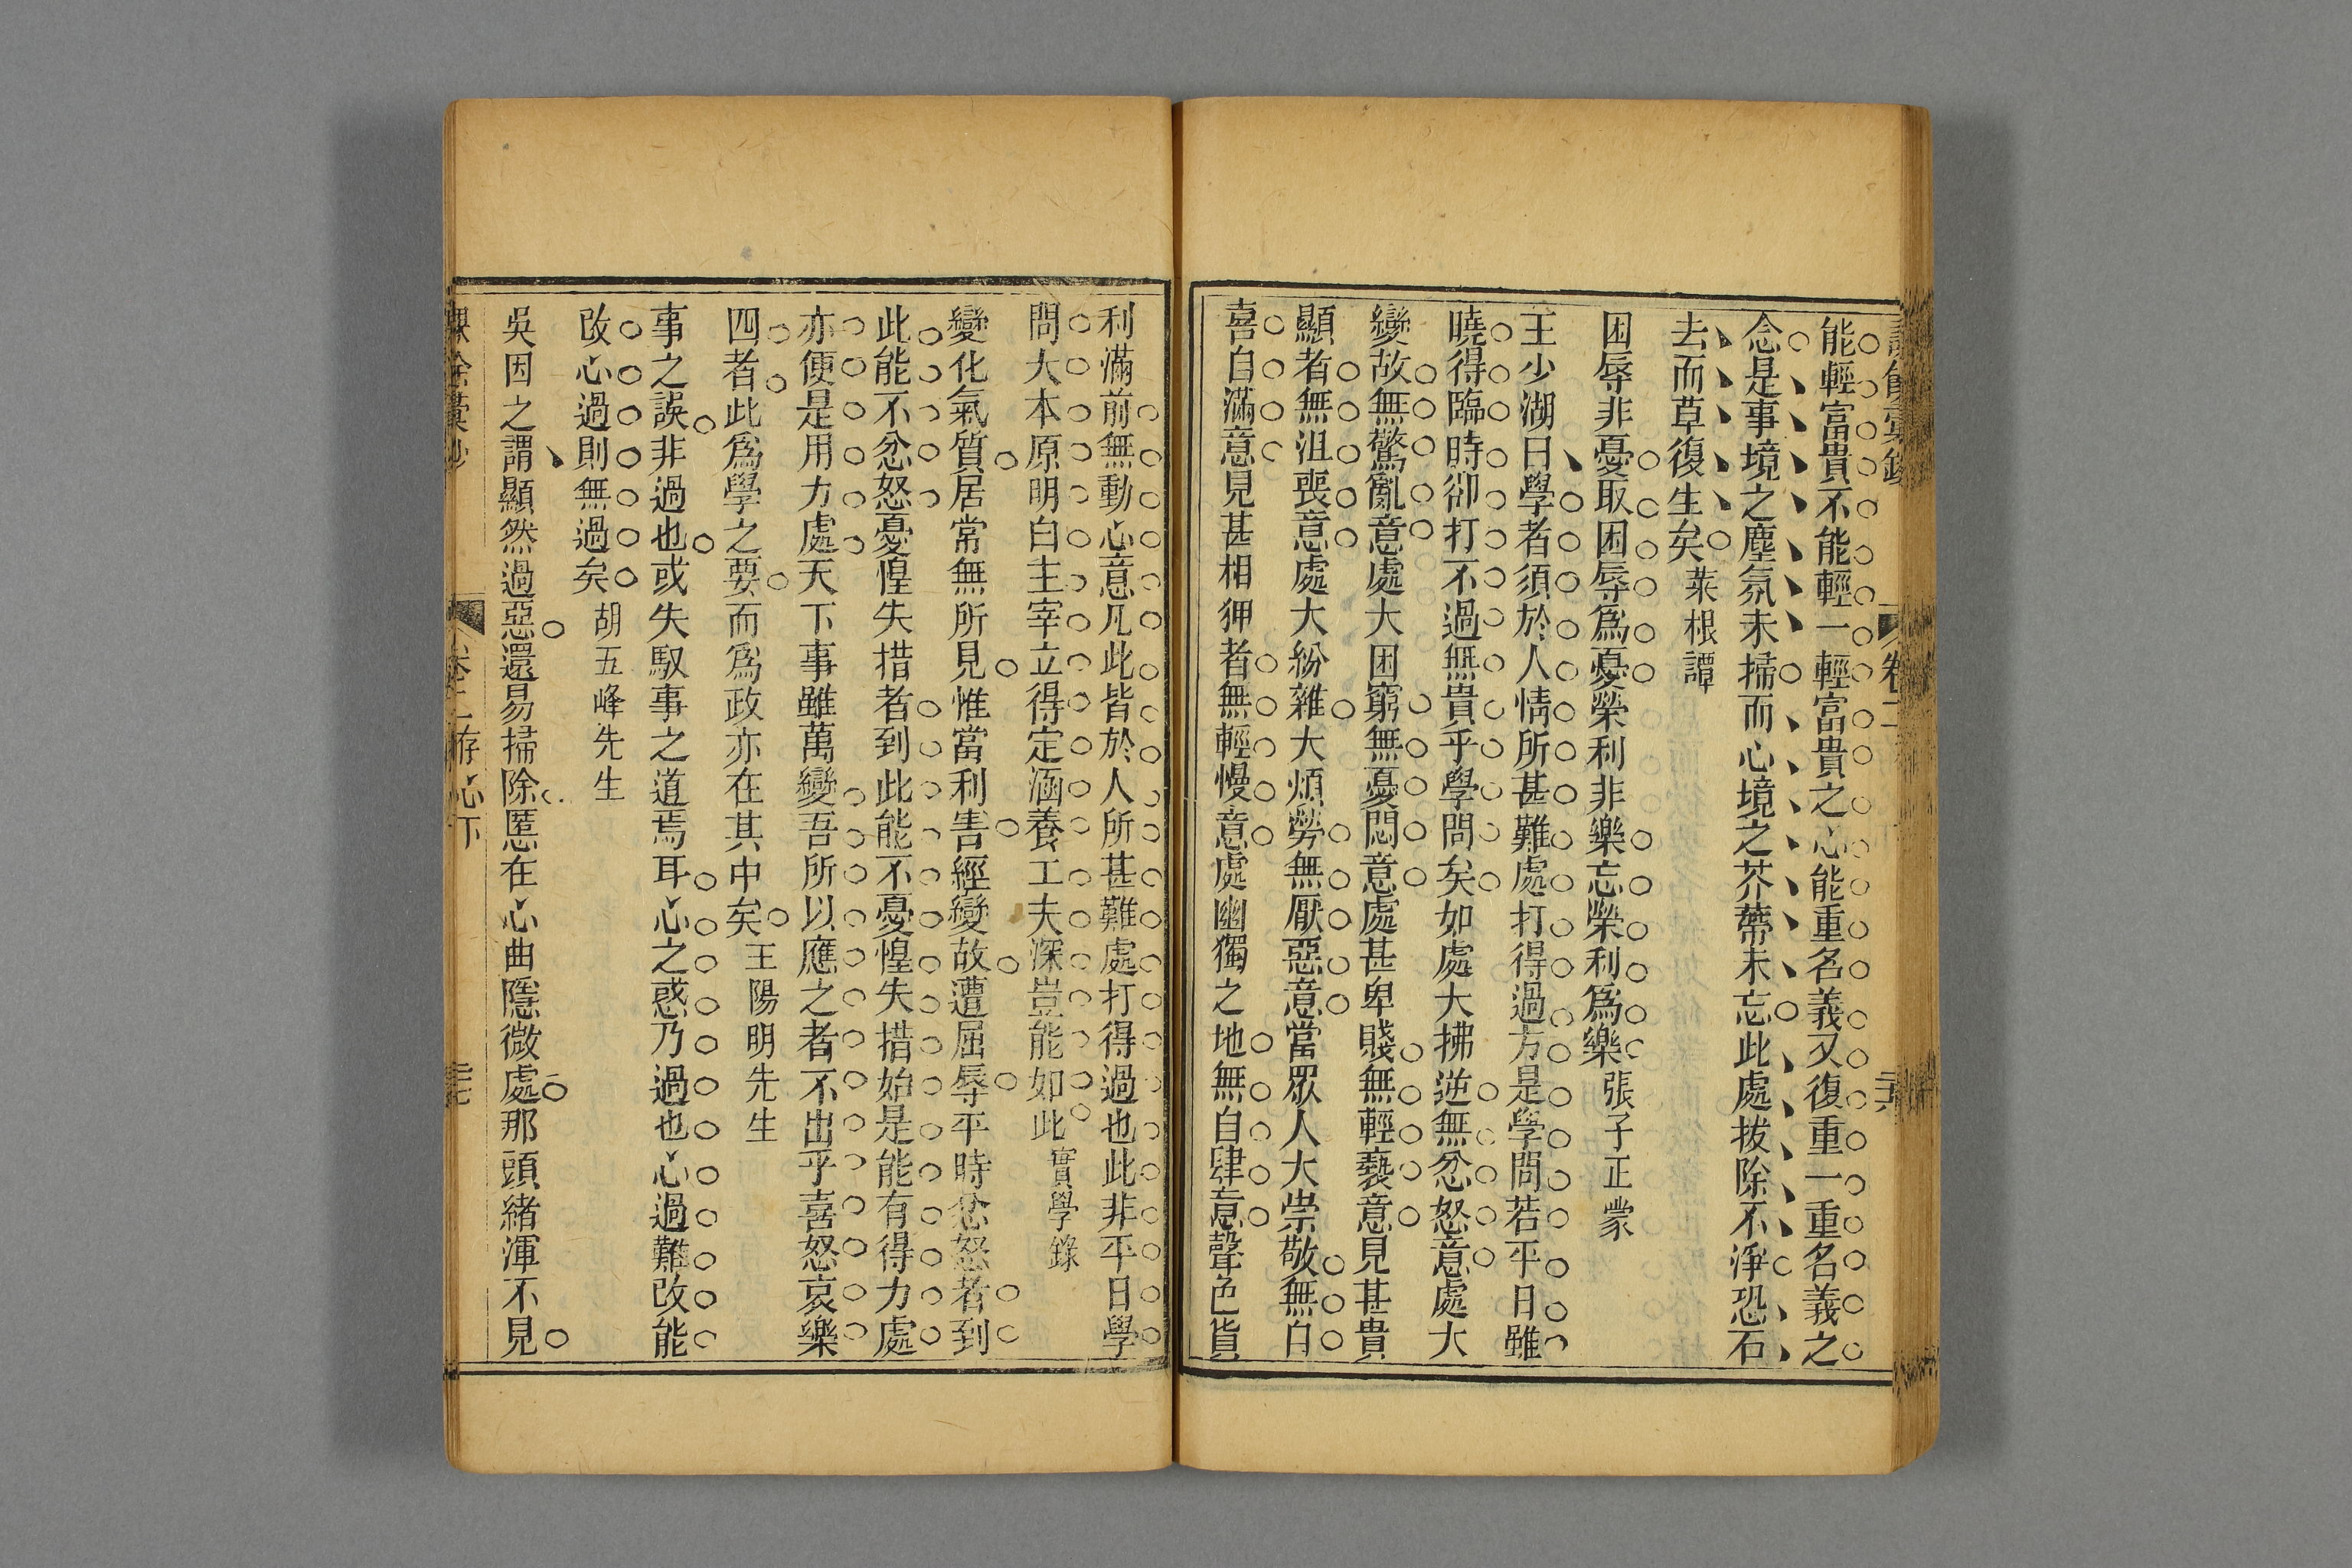 卷二
能輕富貴不能輕一輕富貴之心能重名義又復重一重名義之
念是事境之塵氛未掃而心境之芥蔕未忘此處拔除不淨恐石
去而草復生矣菜根譚
困辱非憂取困辱爲憂榮利非樂忘榮利爲樂張子正蒙
王少湖曰學者須於人情所甚難處打得過方是學問若平日雖
曉得臨時卻打不過無貴乎學問矣如處大拂逆無忿怒意處大
變故無驚亂意處大困窮無憂悶意處甚卑賤無輕褻意見甚貴
顯者無沮喪意處大紛雜大煩勞無厭惡意當眾人大祟敬無自
喜自滿意見甚相狎者無輕慢意處幽獨之地無自肆意聲色貨
利滿前無動心意凡此皆於人所甚難處打得過也此非平日學
問大本原明白主宰立得定涵養工夫深豈能如此實學錄
變化氣質居常無所見惟當利害經變故遭屈辱平時忿怒者到
此能不忿怒憂惶失措者到此能不憂惶失措始是能有得力處
亦便是用力處天下事雖萬變吾所以應之者不出乎喜怒哀樂
四者此爲學之要而爲政亦在其中矣王陽明先生
事之誤非過也或失馭事之道焉耳心之惑乃過也心過難改能
改心過則無過矣胡五峰先生
吳因之謂顯然過惡還易掃除慝在心曲隱微處那頭緒渾不見
卷二存心下